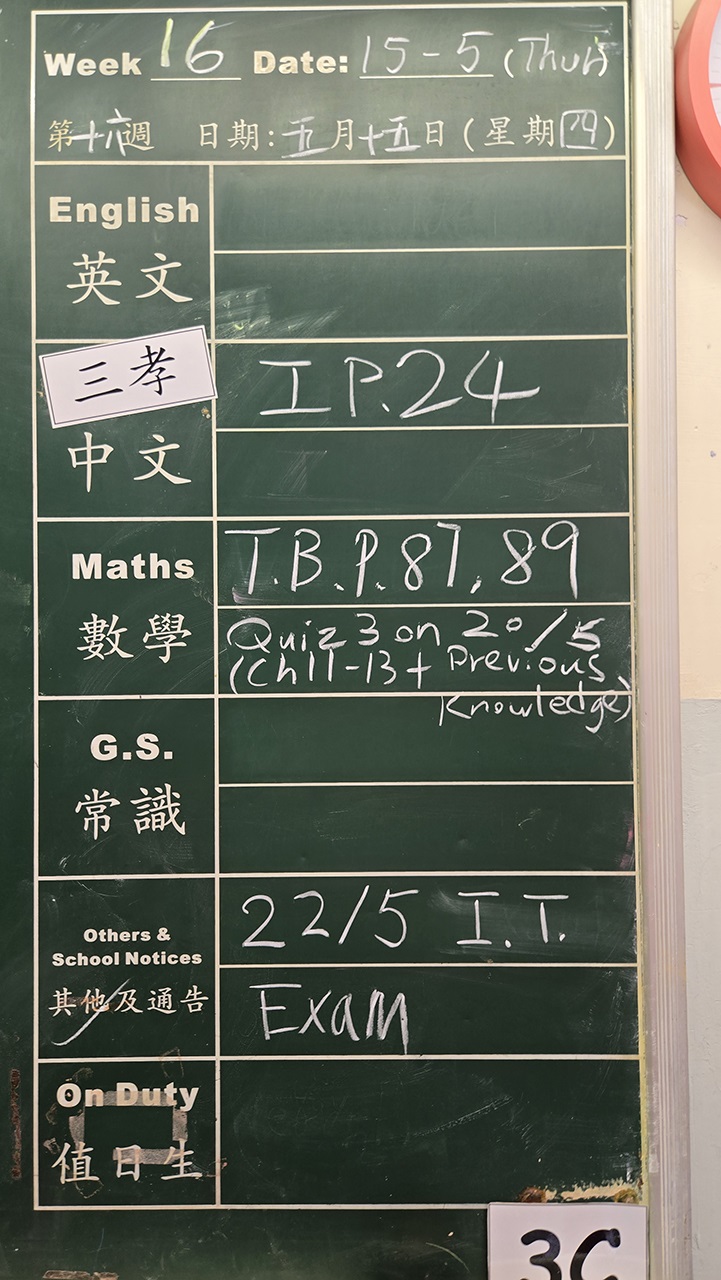 Week 16 Date: 15-5 (Thur)
第十六週 日期:五月十五日(星期四)
English
英文
三孝
I P.24
中文
Maths
T.B.P.87,89
數學
Quiz 3 on 20/5
(Ch11-13+ Previous
Knowledge)
G.S.
常識
Others &
School Notices
22/5 I.T.
其他及通告
Exam
On Duty
值日生
3C